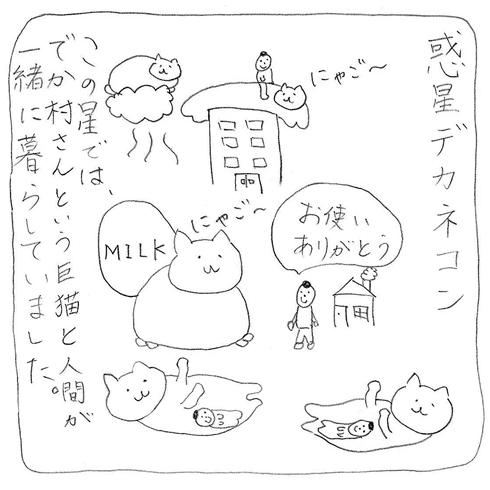 惑星デカネコン
にゃご〜
お使い
ありがとう
にゃご〜
MILK
この星では、
でか村さんという巨猫と人間が
一緒に暮らしていました。